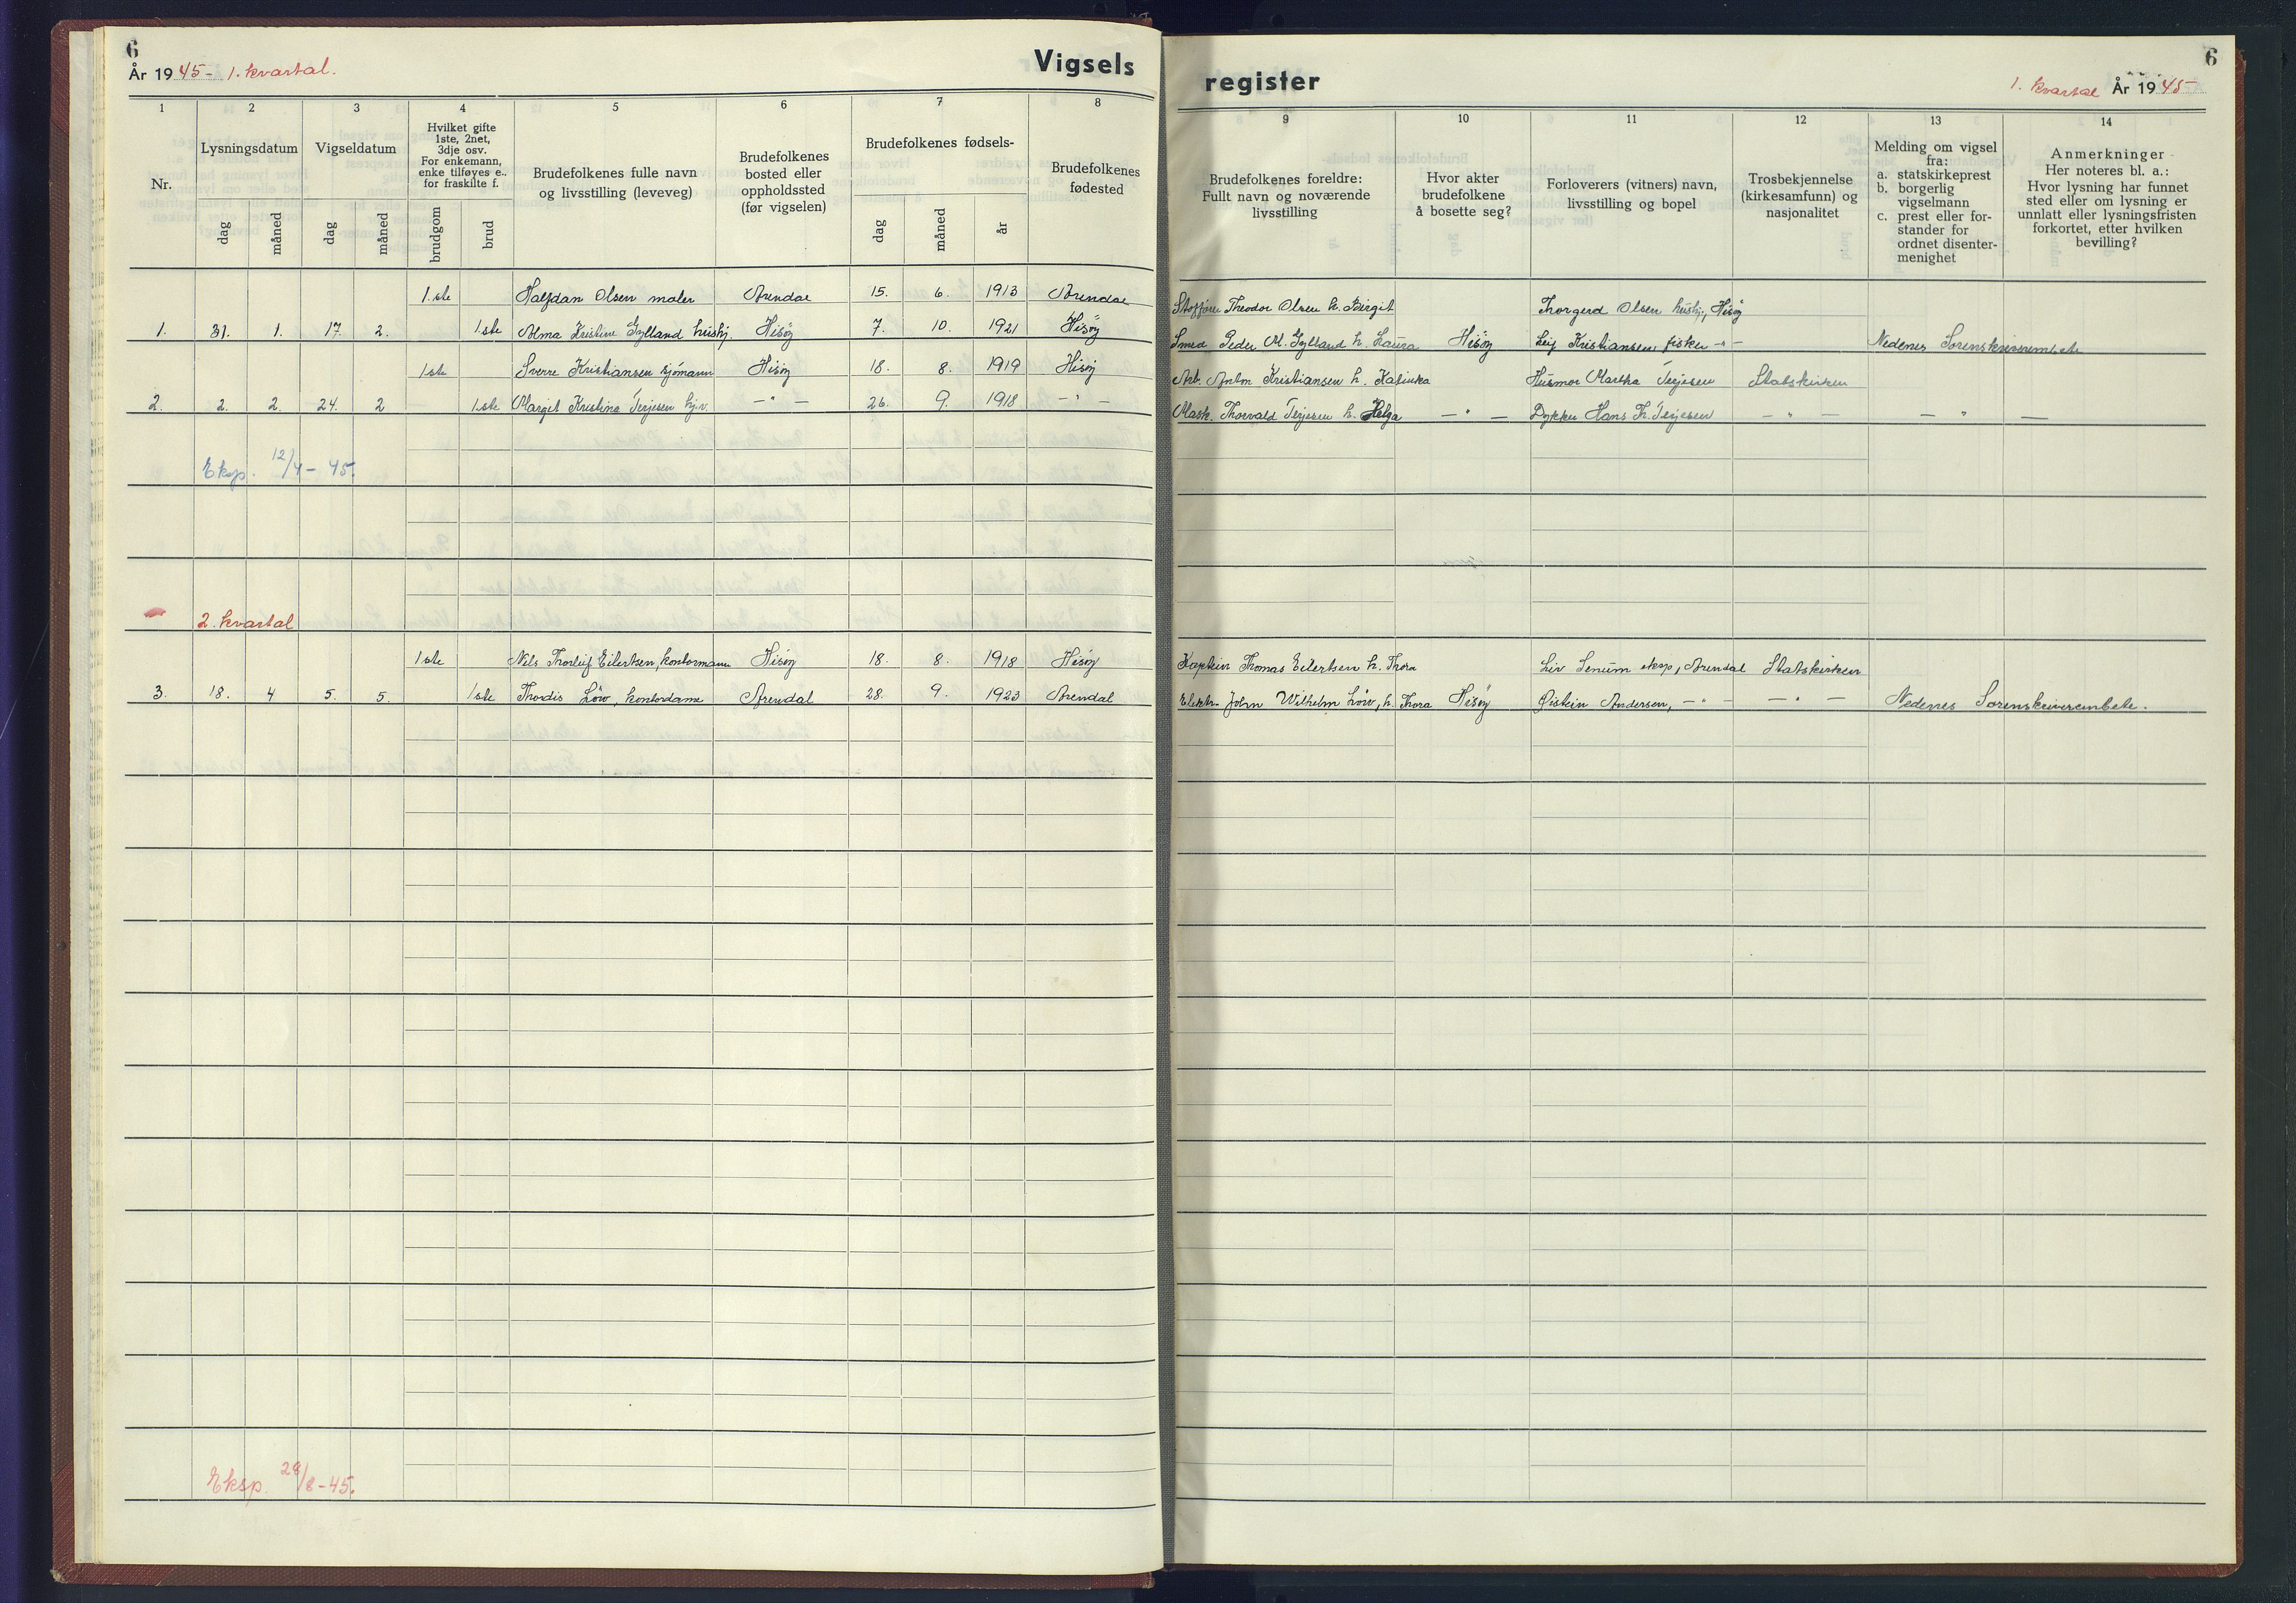 6
År 1945 - 1. kvartal.
Vigsels
register
1. kvartal År 1945
6
1 2 3 4 5 6 7 8
Nr.
Lysningsdatum
dag måned
Vigseldatum
dag måned
Hvilket gifte
1ste, 2net,
3dje osv.
For enkemann,
enke tilføyes e..
for fraskilte f.
brudgom brud
Brudefolkenes fulle navn
og livsstilling (leveveg)
Brudefolkenes
bosted eller
oppholdssted
(før vigselen)
Brudefolkenes fødsels-
dag måned år
Brudefolkenes
fødested
9 10 11 12 13 14
Brudefolkenes foreldre:
Fullt navn og noværende
livsstilling
Hvor akter
brudefolkene
å bosette seg?
Forloverers (vitners) navn,
livsstilling og bopel
Trosbekjennelse
(kirkesamfunn) og
nasjonalitet
Melding om vigsel
fra:
a. statskirkeprest
b. borgerlig
vigselmann
c. prest eller for-
stander for
ordnet disenter-
menighet
Anmerkninger
Her noteres bl. a.:
Hvor lysning har funnet
sted eller om lysning er
unnlatt eller lysningsfristen
forkortet, etter hvilken
bevilling?
1.ste Halfdan Olsen maler Arendal 15. 6. 1913 Arendal Theodor Olsen h. Birgit Thorgerd Olsen hushj., Hisöy
1. 31. 1. 17. 2. 1.ste Alma Kristine Gylland hushj. Hisöy 7. 10. 1921 Hisöy Smed Peder M. Gylland h. Laura Hisöy Leif Kristiansen, fisker -"- Nedenes Sorenskriverembete
1.ste Sverre Kristiansen sjömann Hisöy 18. 8. 1919 Hisöy Arb. Anton Kristiansen h. Katinka Husmor Martha Terjesen Statskirken
2. 2. 2. 24. 2 1.ste Margit Kristine Terjesen hj.v. -"- 26. 9. 1918 -"- Mask. Thorvald Terjesen h. Helga -"- Dykker Hans Th. Terjesen -"- -"-
Eksp. 12/4 - 45.
2. kvartal
1.ste Nils Thorleif Eilertsen, kontormann Hisöy 18. 8. 1918 Hisöy Kaptein Thomas Eilertsen h. Thora Liv Senum eksp., Arendal Statskirken
3. 18. 4 5. 5. 1.ste Thordis Löw, kontordame Arendal 28. 9. 1923 Arendal Elektr. John Wilhelm Löw, h. Thora Hisöy Øistein Andersen, -"- -"- Nedenes Sorenskriverembete.
Eksp. 28/8 - 45.